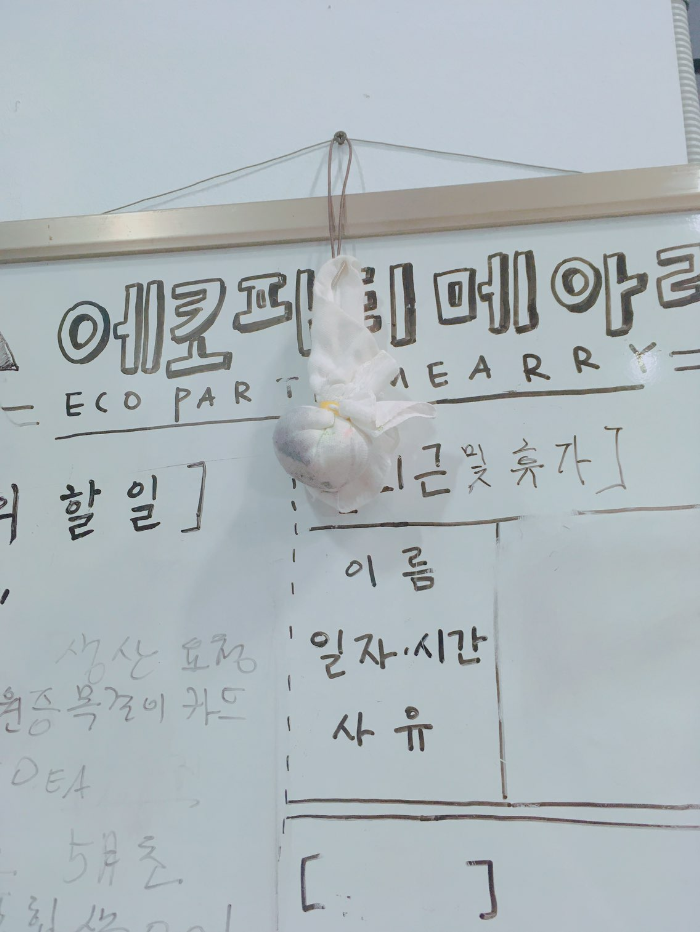 에코파티메아리
ECO PARTY MEARRY
할 일]
및 휴가]
이름
일자·시간
사유
생산 요청
목걸이 카드
5月 초
[ ]